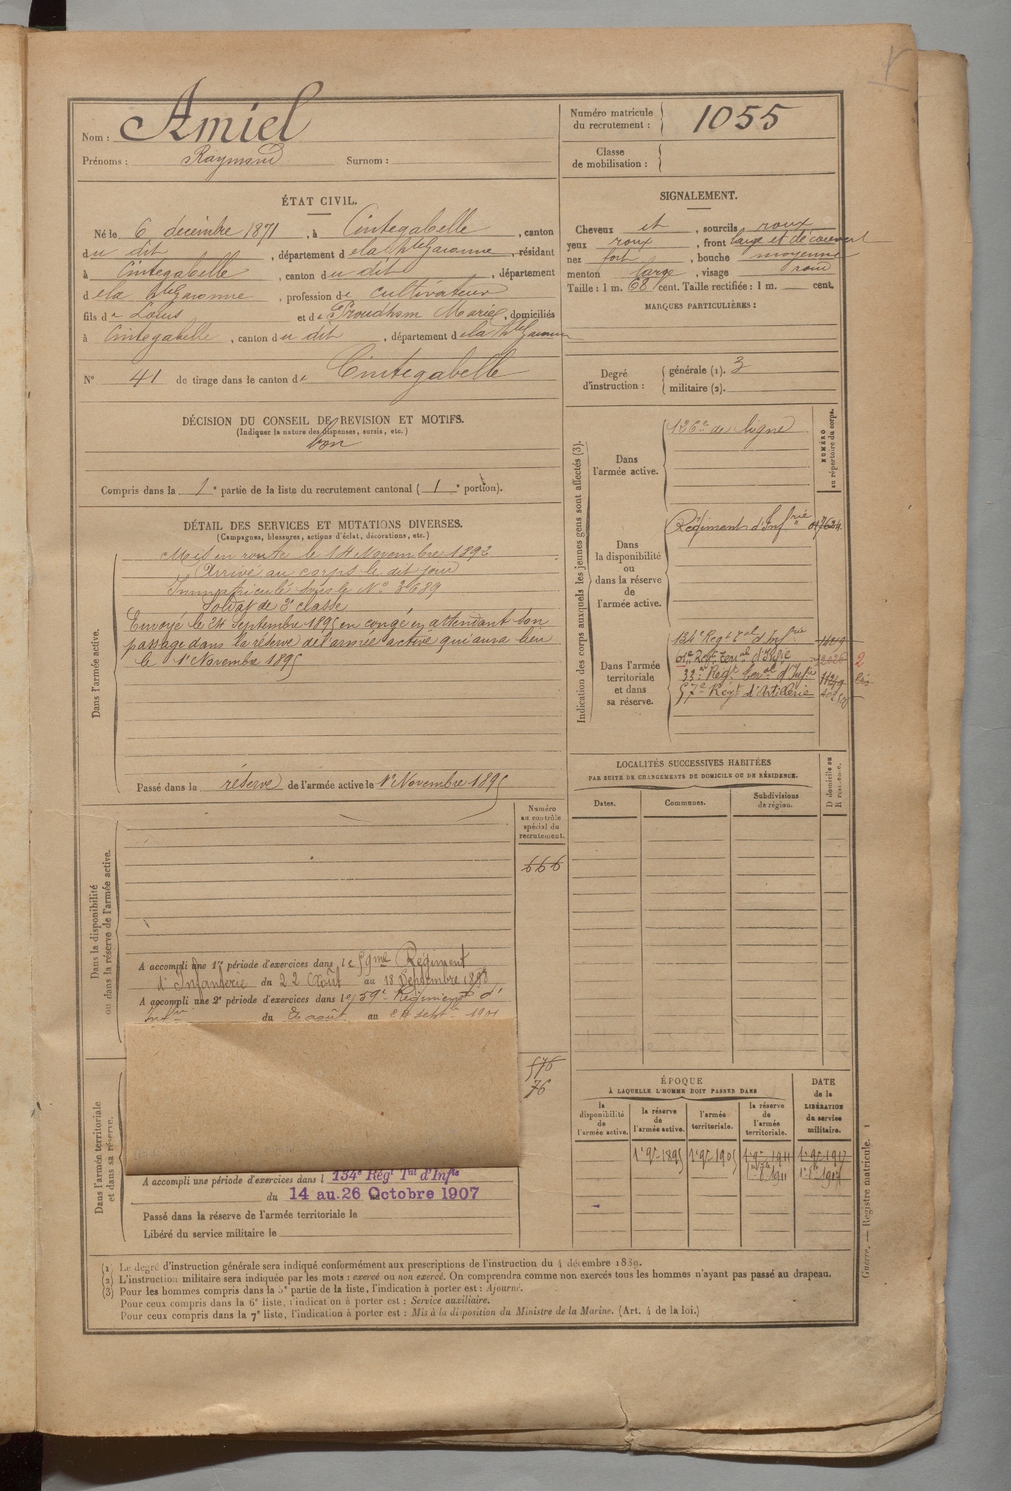 Nom : Amiel
Prénoms : Raymond Surnom :
Numéro matricule du recrutement : 1055
Classe de mobilisation :
ÉTAT CIVIL.
Né le 6 décembre 1871, à Cintegabelle, canton
du dit, département de la Hte Garonne, résidant
à Cintegabelle, canton du dit, département
de la Hte Garonne, profession de cultivateur
fils de Louis et de Proudhom Marie, domiciliés
à Cintegabelle, canton du dit, département de la Hte Garonne
N° 41 de tirage dans le canton de Cintegabelle
SIGNALEMENT.
Cheveux et, sourcils roux
yeux roux, front large et découvert
nez fort, bouche moyenne
menton large, visage rond
Taille : 1 m. 62 cent. Taille rectifiée : 1 m. cent.
MARQUES PARTICULIÈRES :
Degré d'instruction : générale (1). 3
militaire (2).
DÉCISION DU CONSEIL DE REVISION ET MOTIFS.
(Indiquer la nature des dispenses, sursis, etc.)
bon
Compris dans la 1e partie de la liste du recrutement cantonal (1e portion).
DÉTAIL DES SERVICES ET MUTATIONS DIVERSES.
(Campagnes, blessures, actions d'éclat, décorations, etc.)
Dans l'armée active.
Mis en route le 14 Novembre 1892
Arrivé au corps le dit jour
Immatriculé sous le No 3689
Soldat de 2e classe
Envoyé le 24 Septembre 1895 en congé en attendant son
passage dans la réserve de l'armée active qui aura lieu
le 1er Novembre 1895
Passé dans la réserve de l'armée active le 1er Novembre 1895
Indication des corps auxquels les jeunes gens sont affectés (3).
NUMÉRO au répertoire du corps.
Dans l'armée active.
126e de ligne
Dans la disponibilité ou dans la réserve de l'armée active.
Régiment d'Infrie
Dans l'armée territoriale et dans sa réserve.
134e Regt Tal d'Infrie
Regt Terral d'Infie
33e Regt Terral d'Infie
57e Regt d'Artillerie
LOCALITÉS SUCCESSIVES HABITÉES
PAR SUITE DE CHANGEMENTS DE DOMICILE OU DE RÉSIDENCE.
Dates. Communes. Subdivisions de région. D domicile ou R résidence.
Numéro au contrôle spécial du recrutement.
666
Dans la disponibilité ou dans la réserve de l'armée active.
A accompli une 1re période d'exercices dans le 59me Régiment
d'Infanterie du 22 Août au 18 Septembre 1898
A accompli une 2e période d'exercices dans le 59e Régiment d'
du août au sept
576
76
Dans l'armée territoriale et dans sa réserve.
A accompli une période d'exercices dans l 134e Régt Tal d'Infie
du 14 au 26 Octobre 1907
Passé dans la réserve de l'armée territoriale le
Libéré du service militaire le
ÉPOQUE
À LAQUELLE L'HOMME DOIT PASSER DANS
la disponibilité de l'armée active. la réserve de l'armée active. l'armée territoriale. la réserve de l'armée territoriale.
DATE de la LIBÉRATION du service militaire.
1er 9bre 1895 1er 9bre 1905 1er 9bre 1911 1er 9bre 1917
(1) Le degré d'instruction générale sera indiqué conformément aux prescriptions de l'instruction du 4 décembre 1889.
(2) L'instruction militaire sera indiquée par les mots : exercé ou non exercé. On comprendra comme non exercés tous les hommes n'ayant pas passé au drapeau.
(3) Pour les hommes compris dans la 5e partie de la liste, l'indication à porter est : Ajourné.
Pour ceux compris dans la 6e liste, l'indication à porter est : Service auxiliaire.
Pour ceux compris dans la 7e liste, l'indication à porter est : Mis à la disposition du Ministre de la Marine. (Art. 4 de la loi.)
Guerre. — Registre matricule. 1